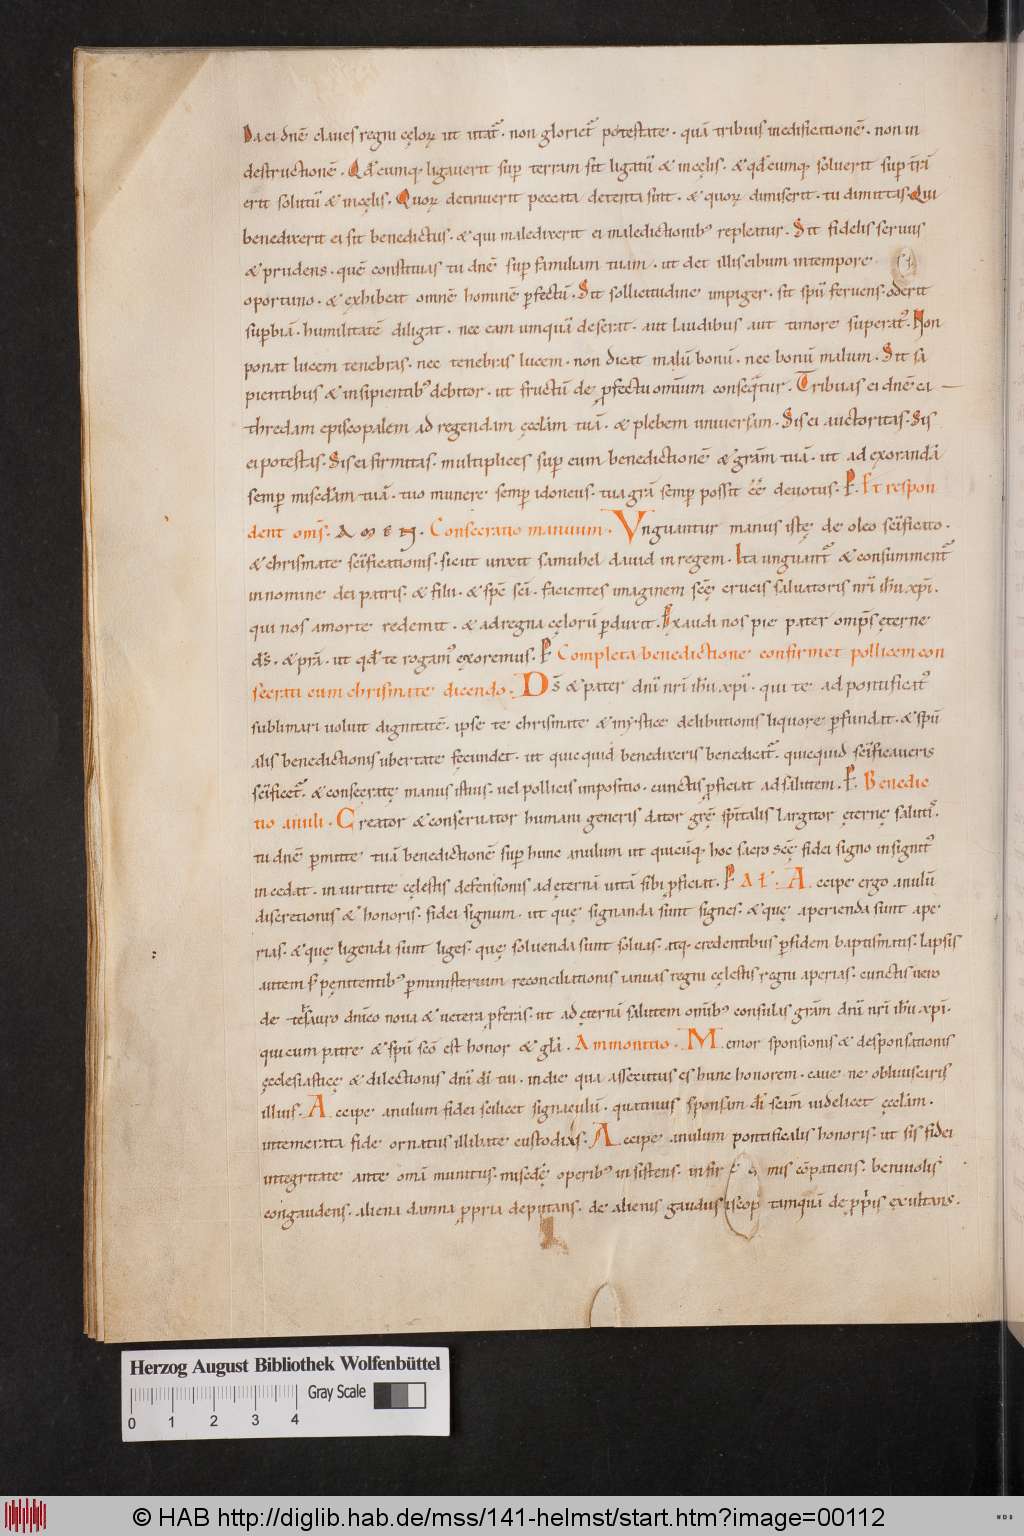 Da ei dn̄e claues regni cęloꝝ ut utat᷑. non gloriet᷑ potestate. quā tribuis inedificationē. non in
destructionē. Qd̄cumq; ligauerit sup̄ terram sit ligatū & incęlis. & qd̄cumq; soluerit sup t̄rā
erit solutū & incęlis. Quoꝝ detinuerit peccata detenta sint. & quoꝝ dimiserit. tu dimittas. Qui
benedixerit ei sit benedictus. & qui maledixerit ei maledictionib; repleatur. Sit fidelis seruus
& prudens. quē constituas tu dn̄e sup familiam tuam. ut det illis cibum intempore
oportuno. & exhibeat omnē hominē ꝑfectū. Sit sollicitudine impiger. sit spū feruens. oderit
supbiā. humilitatē diligat. nec eam umquā deserat. aut laudibus aut timore superat᷑. Non
ponat lucem tenebras. nec tenebras lucem. non dicat malū bonū. nec bonū malum. Sit sa
pientibus & insipientib; debitor. ut fructū de ꝓfectu omnium consequatur. Tribuas ei dn̄e ca
thredam episcopalem ad regendam ęcclām tuā. & plebem uniuersam. Sis ei auctoritas. Sis
ei potestas. Sis ei firmitas. multiplices sup eum benedictionē & grām tuā. ut ad exorandā
semp misc̄dam tuā. tuo munere semp idoneus. tua grā semp possit eē deuotus. P. Et respon
dent om̄s. AMEN. Consecratio manuum. Vnguantur manus istę de oleo sc̄ificato.
& chrismate sc̄ificationis. sicut unxit samuhel dauid in regem. Ita unguant᷑ & consumment᷑
in nomine dei patris. & filii. & sp̄c sc̄i. facientes imaginem sc̄ę crucis saluatoris nr̄i ih̄u xp̄i.
qui nos amorte redemit. & adregna cęlorū ꝑduxit. Exaudi nos pie pater omp̄s ęterne
ds̄. & prā. ut qd̄ te rogam᷒ exoremus. P Completa benedictione confirmet pollicem con
secrati cum chrismate dicendo. Ds̄ & pater dn̄i nr̄i ih̄u xp̄i. qui te ad pontificat᷒
sublimari uoluit dignitatē. ipse te chrismate & mystice delibutionis liquore ꝑfundat. & spū
alis benedictionis ubertate fęcundet. ut quicquid benedixeris benedicat᷑. quicquid sc̄ificaueris
sc̄ificet᷑. & consecratę manus istius. uel pollicis impositio. cunctis ꝓficiat ad salutem. P. Benedic
tio anuli. Creator & conseruator humani generis dator grę̄ spitalis largitor ęternę saluti᷒.
tu dn̄e ꝑmitte tuā benedictionē sup hunc anulum ut quicūq; hoc sacro sc̄ę fidei signo insignit᷒
incedat. in uirtute cęlestis defensionis ad ęternā uitā sibi ꝓficiat. P Al. Accipe ergo anulū
discretionis & honoris. fidei signum. ut quę signanda sunt signes. & quę aperienda sunt ape
rias. & quę liganda sunt liges. quę soluenda sunt soluas. atq; credentibus ꝑfidem baptismatis. lapsis
autem s; pęnitentib; ꝑministerium reconciliationis ianuas regni cęlestis regni aperias. cunctis uero
de tesauro dn̄ico noua & uetera ꝓferas. ut ad ęternā salutem omīb; consulas grām dn̄i nr̄i ih̄u xp̄i.
qui cum patre & spū sc̄o est honor & gła. Ammonitio. Memor sponsionis & desponsationis
ęcclesiasticę & dilectionis dn̄i dī tui. in die qua assecutus es hunc honorem. caue ne obliuiscaris
illius. Accipe anulum fidei scilicet signaculū. quatinus sponsam dī scām uidelicet ęcclām.
intemerata fide ornatus illibate custodias. Accipe anulum pontificalis honoris. ut sis fidei
integritate ante om̄ā munitus. misc̄dę operib; insistens. infirmis cōpatiens. beniuolis
congaudens. aliena damna ꝓpria deputans. de alienis gaudiis tamquā de ꝓpriis exultans.
Herzog August Bibliothek Wolfenbüttel
Gray Scale
0 1 2 3 4
© HAB http://diglib.hab.de/mss/141-helmst/start.htm?image=00112